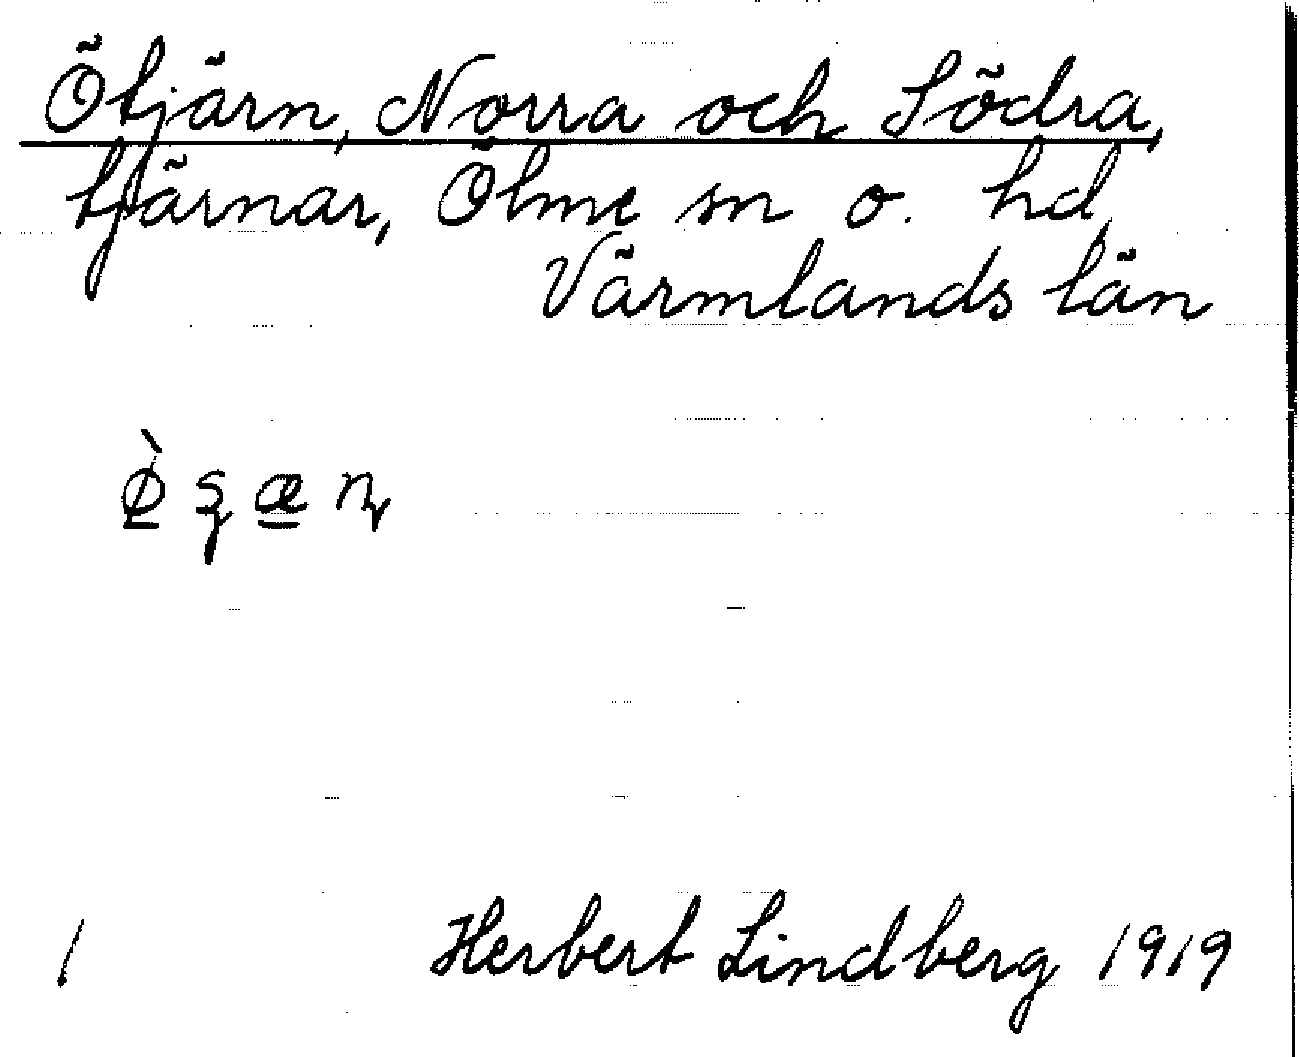 Ötjärn, Norra och Södra,
tjärnar, Ölme sn o. hd,
Värmlands län
1 Herbert Lindberg 1919